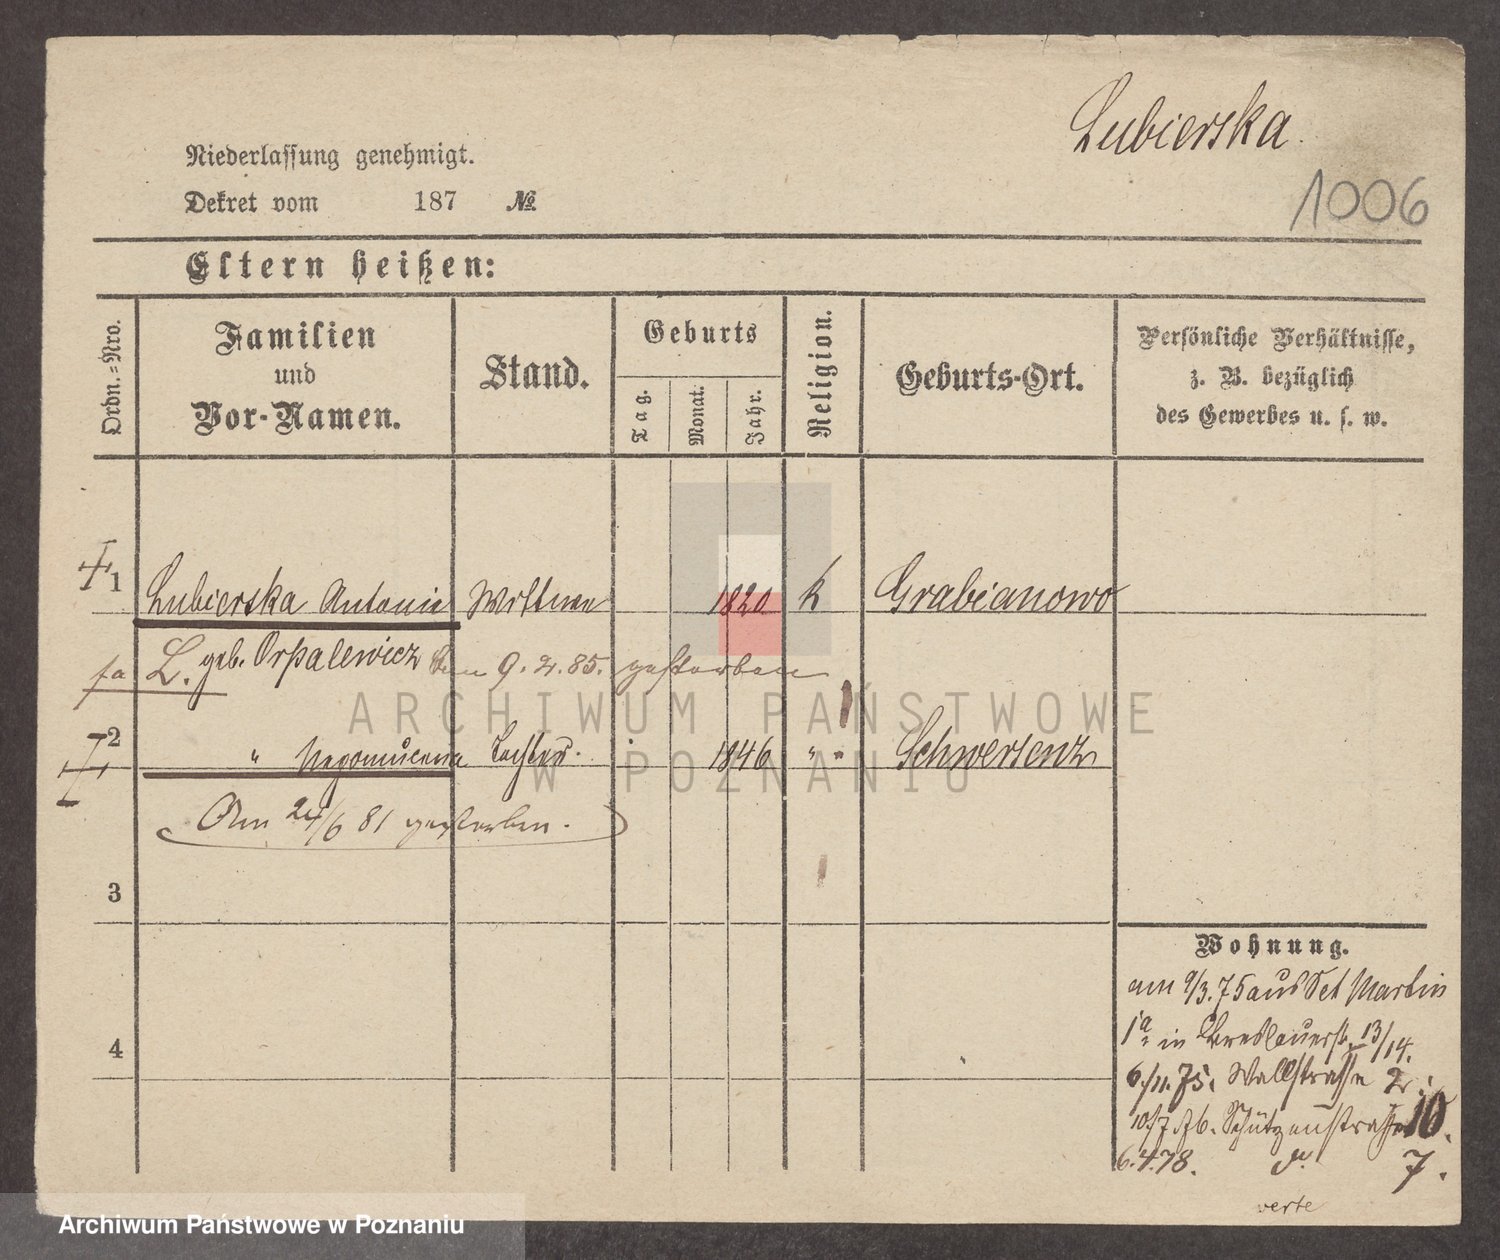 Lubierska.
1006
Niederlassung genehmigt.
Dekret vom 187 №
Eltern heißen:
Ordn.=Nro.
Familien
und
Vor-Namen.
Stand.
Geburts
Tag.
Monat.
Jahr.
Religion.
Geburts-Ort.
Persönliche Verhältnisse,
z. B. bezüglich
des Gewerbes u. s. w.
1 Lubierska Antonie Wittwe 1820 k Grabianowo
L. geb. Orpalewicz 9.2.85. gestorben
2 " Nepomucena Tochter. 1846 " " Schwersenz
Am 24/6 81 gestorben.
3
4
Wohnung.
am 9/3.75 aus Sct Martin
1a in Breslauerst. 13/14.
6./11.75. Wallstraße 2.
10/7.76. Schützenstraße 10.
6.4.78. do 7.
verte
ARCHIWUM PAŃSTWOWE
W POZNANIU
Archiwum Państwowe w Poznaniu